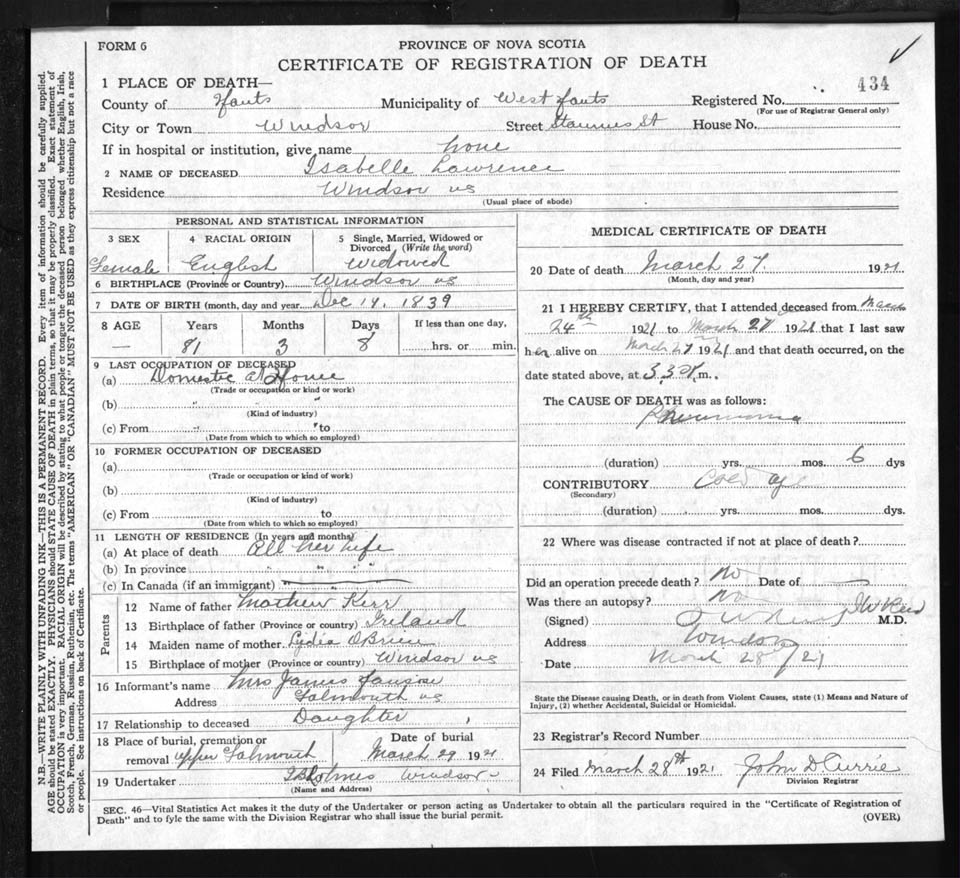 FORM 6
PROVINCE OF NOVA SCOTIA
CERTIFICATE OF REGISTRATION OF DEATH
434
1 PLACE OF DEATH—
County of Hants Municipality of West Hants Registered No.
(For use of Registrar General only)
City or Town Windsor Street St House No.
If in hospital or institution, give name none
2 NAME OF DECEASED Isabelle Lawrence
Residence Windsor NS
(Usual place of abode)
PERSONAL AND STATISTICAL INFORMATION
3 SEX 4 RACIAL ORIGIN 5 Single, Married, Widowed or Divorced (Write the word)
Female English Widowed
6 BIRTHPLACE (Province or Country) Windsor NS
7 DATE OF BIRTH (month, day and year) Dec 19, 1839
8 AGE Years Months Days If less than one day,
— 81 3 8 hrs. or min.
9 LAST OCCUPATION OF DECEASED
(a) Domestic at Home
(Trade or occupation or kind or work)
(b) " "
(Kind of industry)
(c) From " to "
(Date from which to which so employed)
10 FORMER OCCUPATION OF DECEASED
(a)
(Trade or occupation or kind of work)
(b)
(Kind of industry)
(c) From to
(Date from which to which so employed)
11 LENGTH OF RESIDENCE (In years and months)
(a) At place of death All her life
(b) In province " " "
(c) In Canada (if an immigrant)
Parents
12 Name of father Mathew Kerr
13 Birthplace of father (Province or country) Ireland
14 Maiden name of mother Lydia OBrien
15 Birthplace of mother (Province or country) Windsor NS
16 Informant's name Mrs James
Address Falmouth NS
17 Relationship to deceased Daughter
18 Place of burial, cremation or removal Upper Falmouth
Date of burial March 29 1921
19 Undertaker Holmes Windsor
(Name and Address)
MEDICAL CERTIFICATE OF DEATH
20 Date of death March 27. 1921
(Month, day and year)
21 I HEREBY CERTIFY, that I attended deceased from March
24th 1921 to March 27 1921 that I last saw
her alive on March 27 1921 and that death occurred, on the
date stated above, at 3.30 .m.
The CAUSE OF DEATH was as follows:
Pneumonia
(duration) yrs. mos. 6 dys
CONTRIBUTORY Old age
(Secondary)
(duration) yrs. mos. dys.
22 Where was disease contracted if not at place of death?
Did an operation precede death? no Date of —
Was there an autopsy? no
(Signed) J W Reid M.D.
Address Windsor
Date March 28/21
State the Disease causing Death, or in death from Violent Causes, state (1) Means and Nature of
Injury, (2) whether Accidental, Suicidal or Homicidal.
23 Registrar's Record Number
24 Filed March 28th 1921 John D Currie
Division Registrar
SEC. 46—Vital Statistics Act makes it the duty of the Undertaker or person acting as Undertaker to obtain all the particulars required in the "Certificate of Registration of
Death" and to fyle the same with the Division Registrar who shall issue the burial permit.
(OVER)
N.B.—WRITE PLAINLY WITH UNFADING INK—THIS IS A PERMANENT RECORD. Every item of information should be carefully supplied.
AGE should be stated EXACTLY. PHYSICIANS should STATE CAUSE OF DEATH in plain terms, so that it may be properly classified. Exact statement of
OCCUPATION is very important. RACIAL ORIGIN will be described by stating to what people or tongue the deceased person belonged whether English, Irish,
Scotch, French, German, Russian, Ruthenian, etc. The terms "AMERICAN" OR "CANADIAN" MUST NOT BE USED as they express citizenship but not a race
or people. See instructions on back of Certificate.